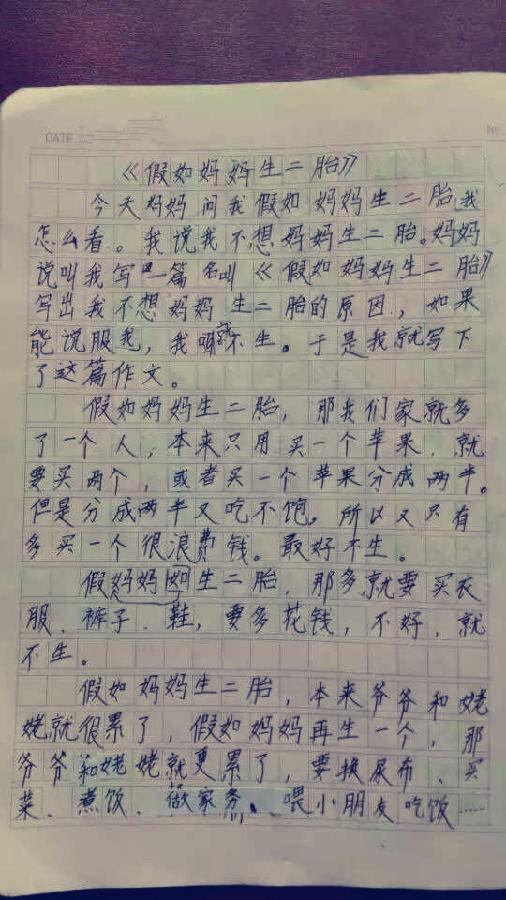 DATE
No
《假如妈妈生二胎》
今天妈妈问我假如妈妈生二胎,我
怎么看。我说我不想妈妈生二胎。妈妈
说叫我写一篇名叫《假如妈妈生二胎》
写出我不想妈妈生二胎的原因,如果
能说服我,我 不生。于是我就写下
了这篇作文。
假如妈妈生二胎,那我们家就多
了一个人,本来只用买一个苹果,就
要买两个,或者买一个苹果分成两半。
但是分成两半又吃不饱。所以又只有
多买一个很浪费钱。最好不生。
假妈妈如生二胎,那多就要买衣
服、裤子、鞋,要多花钱,不好,就
不生。
假如妈妈生二胎,本来爷爷和姥
姥就很累了,假如妈妈再生一个,那
爷爷和姥姥就更累了,要换尿布、买
菜、煮饭、做家务、喂小朋友吃饭……